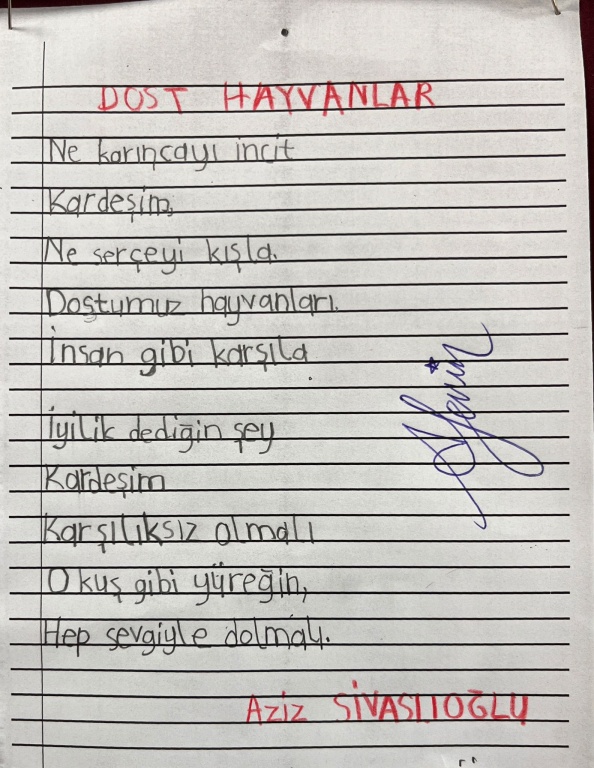 DOST HAYVANLAR
Ne karıncayı incit
Kardeşim,
Ne serçeyi kışla.
Doştumuz hayvanları.
İnsan gibi karşıla
İyilik dediğin şey
Kardeşim
Karşılıksız olmalı
O kuş gibi yüreğin,
Hep sevgiyle dolmalı.
Aziz SİVASLIOĞLU